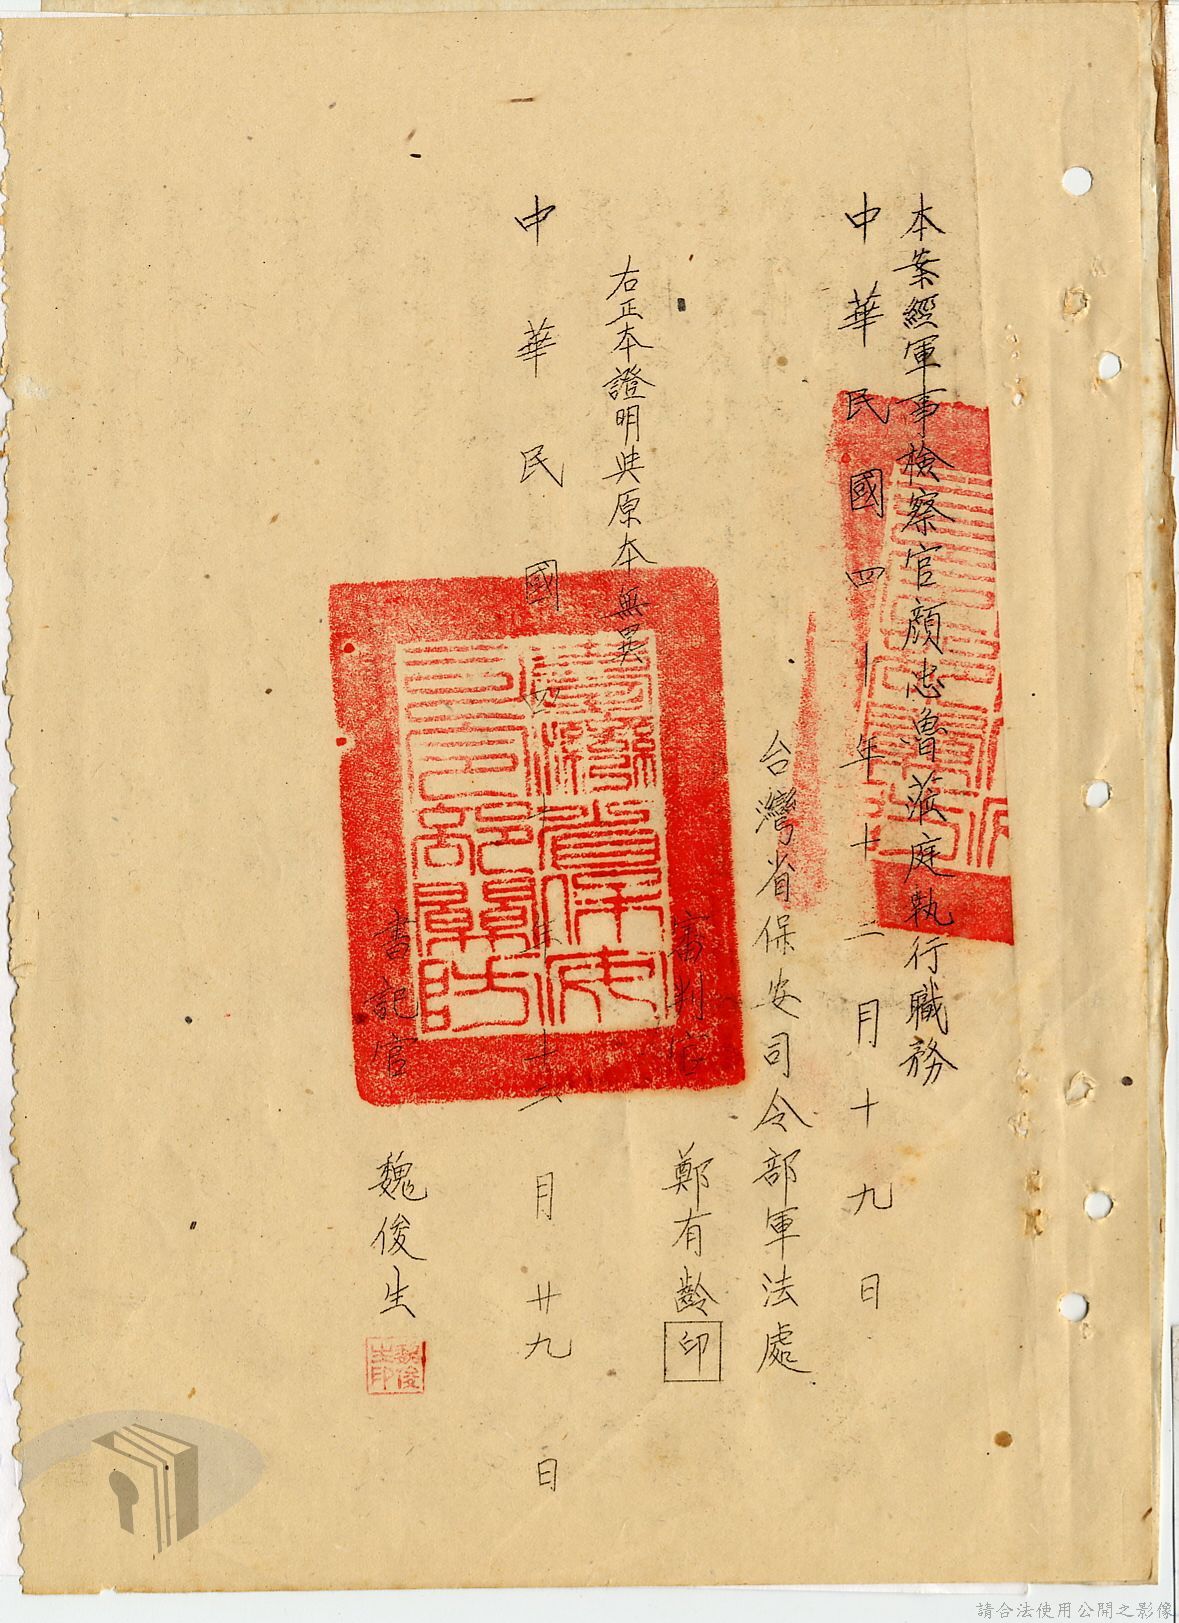 本案經軍事檢察官顏忠魯蒞庭執行職務
中華民國四十年十二月十九日
台灣省保安司令部軍法處
審判官 鄭有齡 印
右正本證明與原本無異
中華民國四十年十二月廿九日
書記官 魏俊生
魏俊生印
臺灣省保安司令部軍法
請合法使用公開之影像